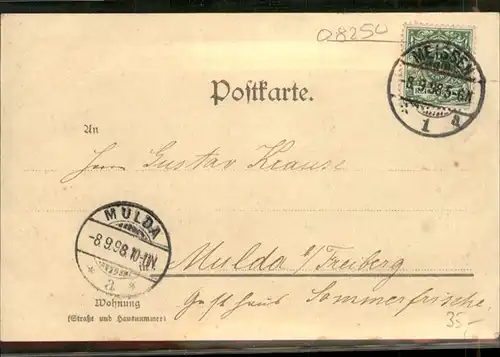 08250
MEISSEN
8.9.98.5-6N
1 a
Postkarte.
An
Herrn Gustav Krause
MULDA
-8.9.98.10-11N.
a
Mulda b/Freiberg
Wohnung
Gasthaus Sommerfrische.
(Straße und Hausnummer)
35,-